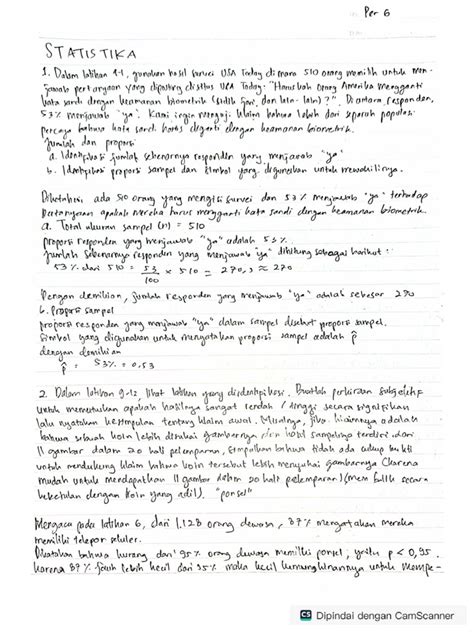 Per 6
STATISTIKA
1. Dalam latihan 1-4, gunakan hasil survei USA Today di mana 510 orang memilih untuk men-
jawab pertanyaan yang diposting disitus USA Today. "Haruskah Orang Amerika mengganti
kata sandi dengan keamanan biometrik (sidik jari, dan lain-lain)?". Diantara responden,
53% menjawab "ya". Kami ingin menguji klaim bahwa lebih dari separuh populasi
percaya bahwa kata sandi harus diganti dengan keamanan biometrik.
Jumlah dan proporsi
a. Identifikasi jumlah sebenarnya responden yang menjawab "ya"
b. Identifikasi proporsi sampel dan simbol yang digunakan untuk mewakilinya.
Diketahui, ada 510 orang yang mengisi survei dan 53% menjawab "ya" terhadap
pertanyaan apakah mereka harus mengganti kata sandi dengan keamanan biometrik.
a. Total ukuran sampel (n) = 510
proporsi responden yang menjawab "ya" adalah 53%.
Jumlah sebenarnya responden yang menjawab "ya" dihitung sebagai berikut :
53% dari 510 = 53/100 × 510 = 270,3 ≈ 270
Dengan demikian, jumlah responden yang menjawab "ya" adalah sebesar 270
b. Proporsi sampel
proporsi responden yang menjawab "ya" dalam sampel disebut proporsi sampel.
Simbol yang digunakan untuk menyatakan proporsi sampel adalah p̂
dengan demikian
p̂ = 53% = 0,53
2. Dalam latihan 9-12, lihat latihan yang diidentifikasi. Buatlah perkiraan subjektif
untuk memutuskan apakah hasilnya sangat rendah / tinggi secara signifikan
lalu nyatakan kesimpulan tentang klaim awal. Misalnya, jika klaimnya adalah
bahwa sebuah koin lebih disukai gambarnya dan hasil sampelnya terdiri dari
11 gambar dalam 20 kali pelemparan, simpulkan bahwa tidak ada cukup bukti
untuk mendukung klaim bahwa koin tersebut lebih menyukai gambarnya (karena
mudah untuk mendapatkan 11 gambar dalam 20 kali pelemparan) secara
kebetulan dengan koin yang adil). "ponsel"
Mengacu pada latihan 6, dari 1.128 orang dewasa, 87% mengatakan mereka
memiliki telepon seluler.
Dikatakan bahwa kurang dari 95% orang dewasa memiliki ponsel, yaitu p < 0,95.
karena 87% jauh lebih kecil dari 95% maka kecil kemungkinannya untuk mempe-
CS Dipindai dengan CamScanner